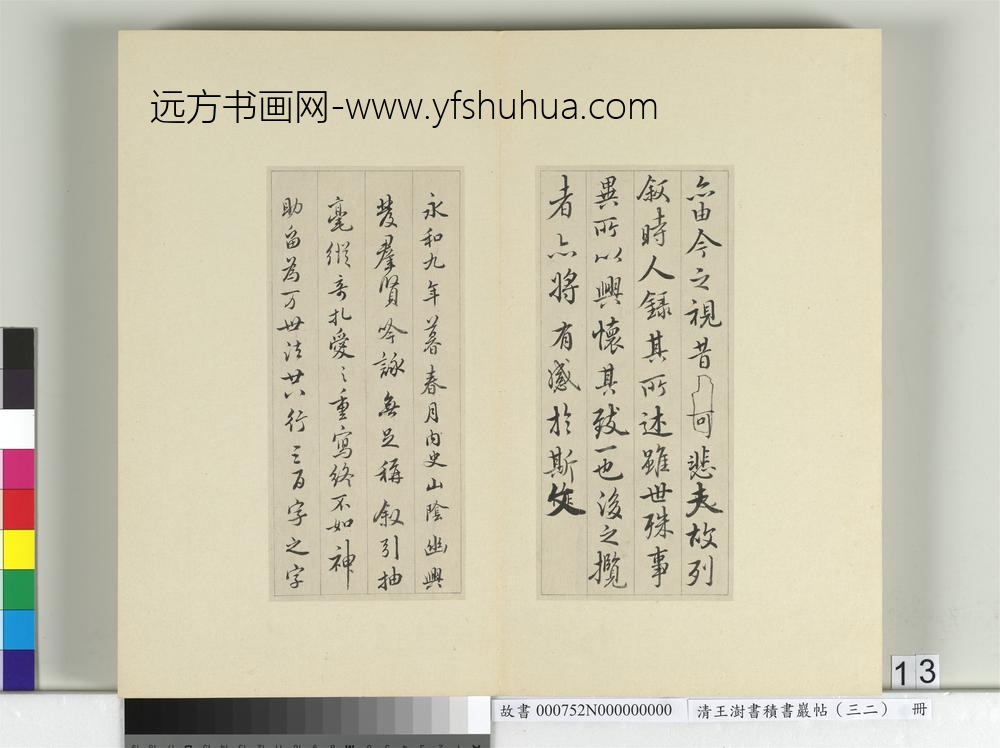 远方书画网-www.yfshuhua.com
亦由今之視昔可悲夫故列
叙時人録其所述雖世殊事
異所以興懷其致一也後之攬
者亦將有感於斯文
永和九年暮春月内史山陰幽興
發羣賢吟詠無足稱叙引抽
毫縱奇札愛之重寫終不如神
助留為万世法廿八行三百字之字
13
故書 000752N000000000 清王澍書積書巖帖（三二） 冊